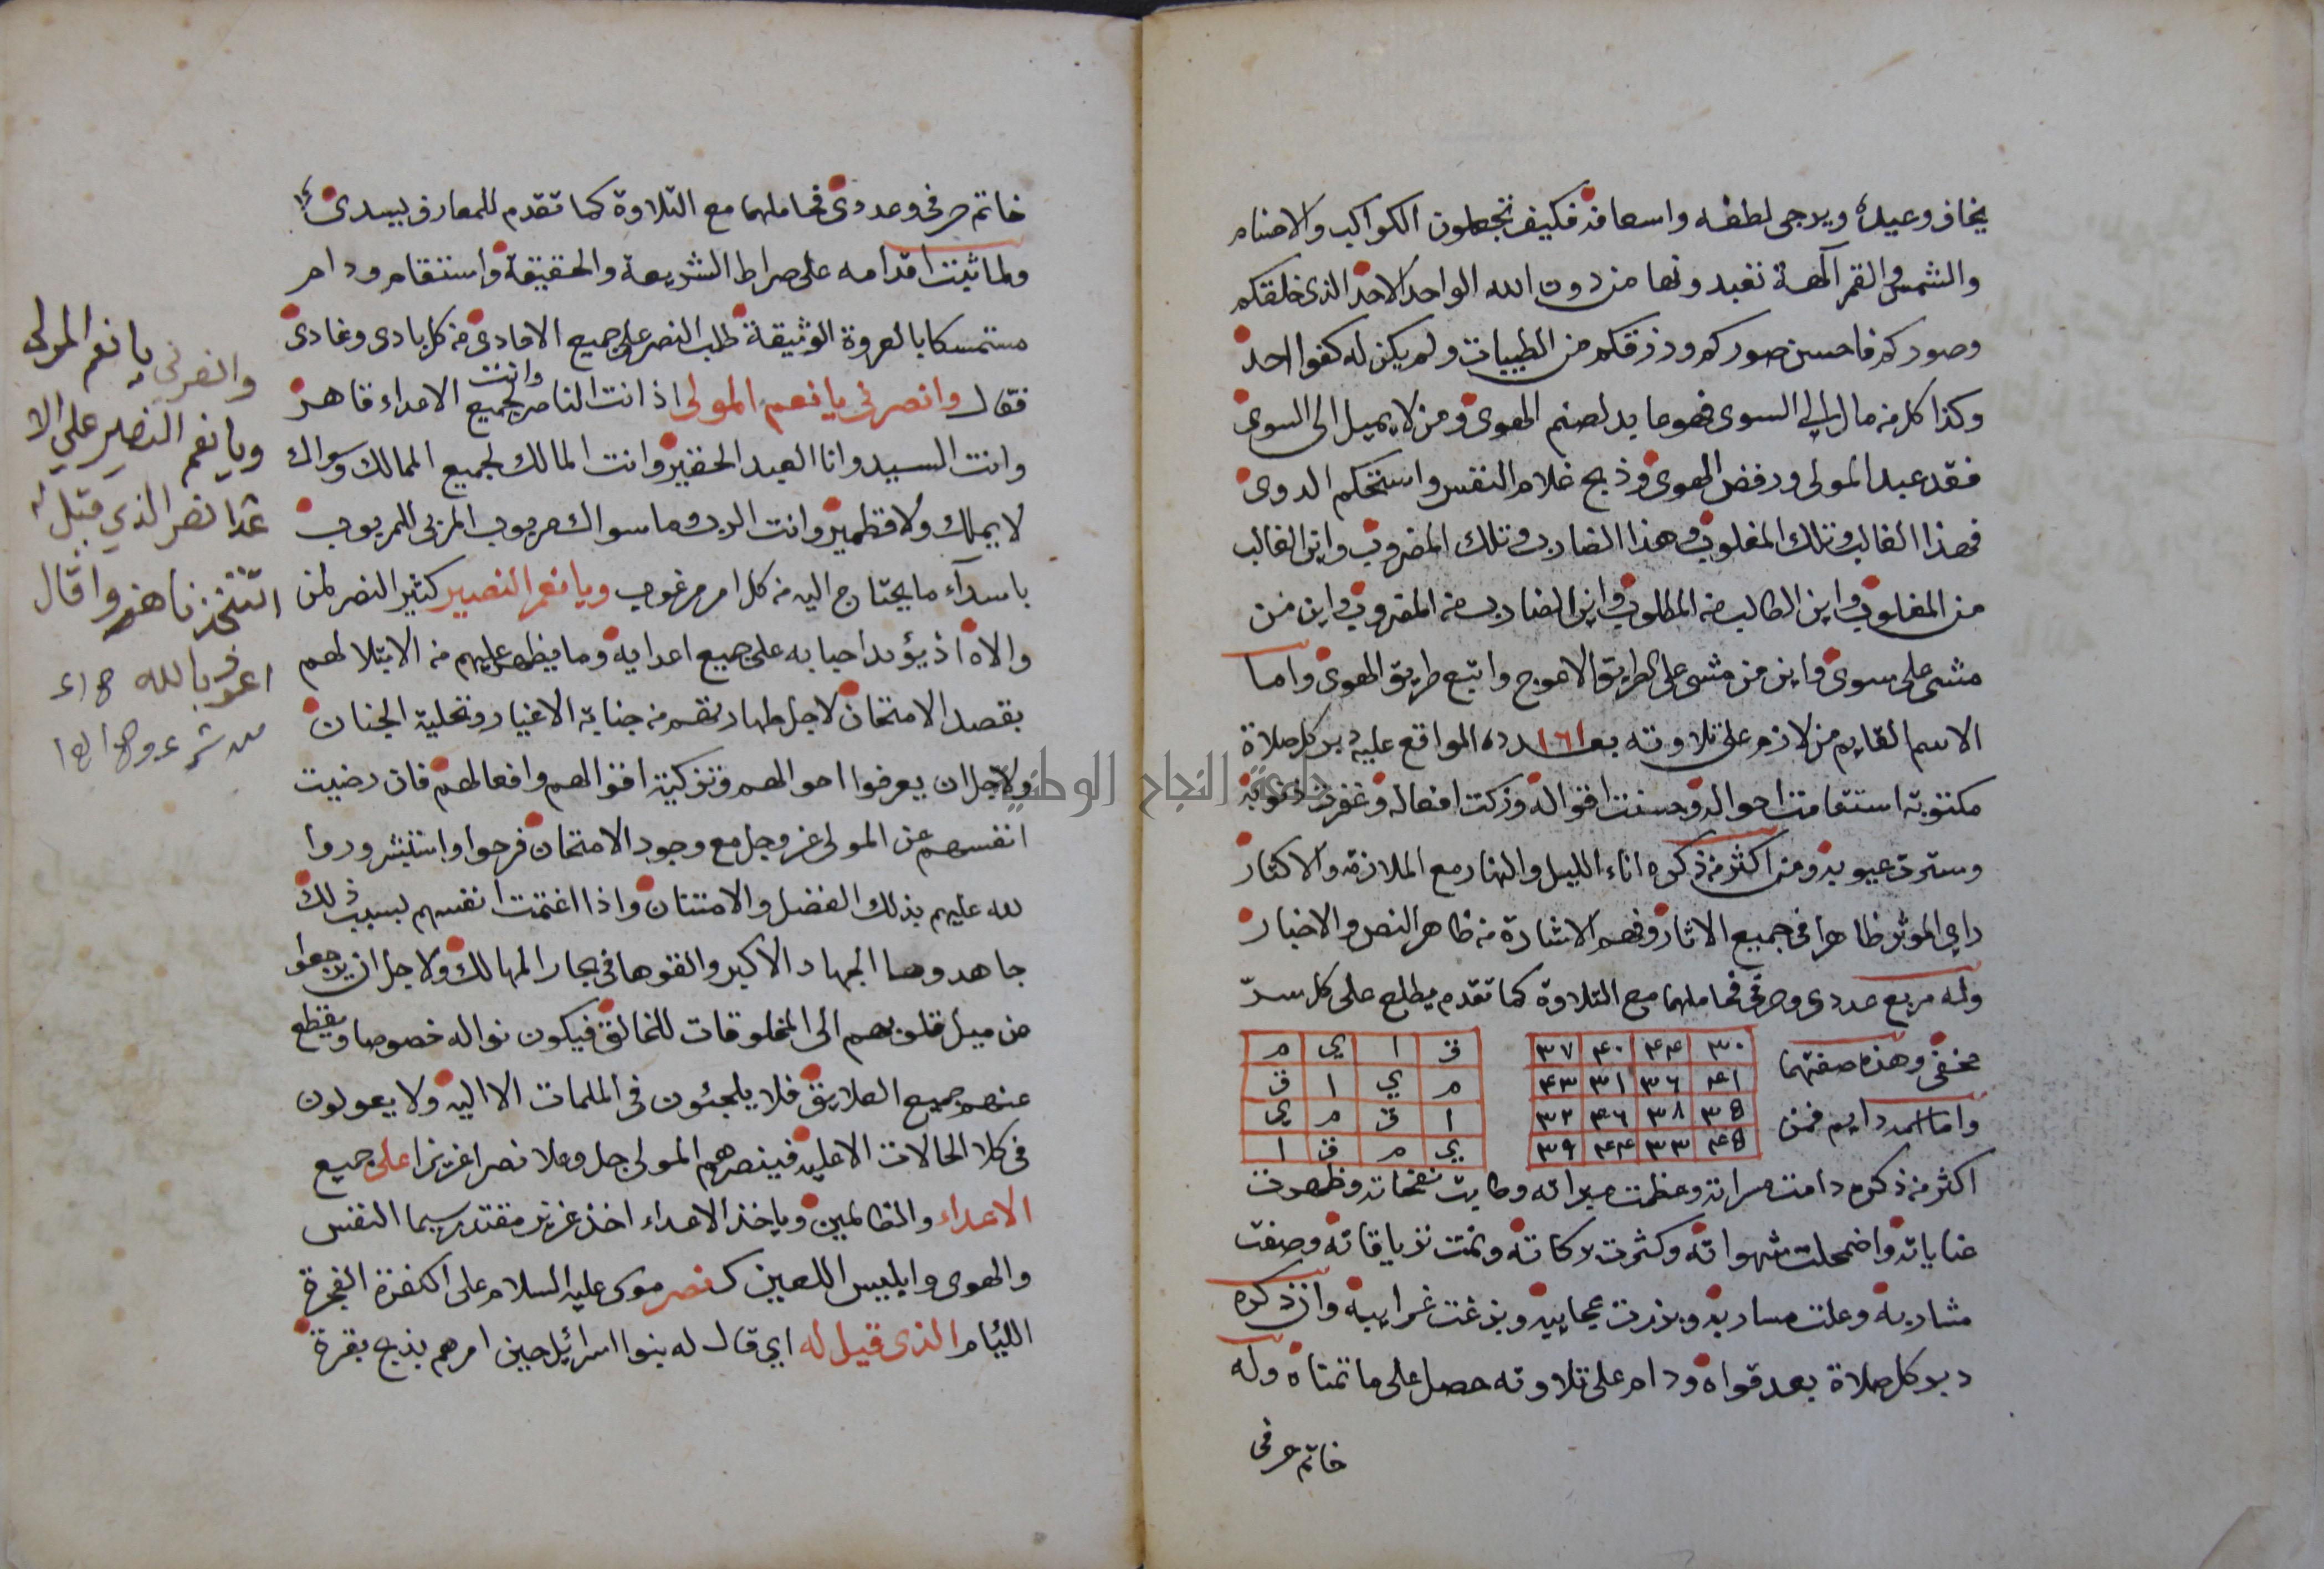 يخاف وعيده ويرجى لطفه واسعافه فكيف تجعلون الكواكب والاصنام
والشمس والقمر آلهة تعبدونها من دون الله الواحد الاحد الذى خلقكم
وصوركم فاحسن صوركم ورزقكم من الطيبات ولم يكن له كفوا احد
وكذا كل من مال الى السوى فهو عابد لصنم الهوى ومن لا يميل الى السوى
فقد عبد المولى ورفض الهوى وذبح غلام النفس واستحكم الدوى
فهذا الغالب وتلك المغلوب وهذا الضارب وتلك المضروب واين الغالب
من المغلوب واين الطالب من المطلوب واين الضارب من المضروب واين من
مشى على سوى واين من مشى على الطريق الاعوج واتبع طريق الهوى واما
الاسم القايم من لازم على تلاوته بعدده ١٦١ المواقع عليه دبر كل صلاة
مكتوبة استقامت احواله وحسنت اقواله وزكت افعاله وغفرت ذنوبه
وسترت عيوبه ومن اكثر من ذكره اناء الليل والنهار مع الملازمة والاكثار
راى الموثر ظاهرا فى جميع الاثار وفهم الاشارة من ظاهر النص والاخبار
وله مربع عددى وحرفى فحاملهما مع التلاوة كما تقدم يطلع على كل سر
مخفى وهذه صفتهما
٣٠ ٤٤ ٤٠ ٣٧
ق ا ي م
٤١ ٣٦ ٣١ ٤٣
م ي ا ق
واما اسمه دايم فمن
٣٥ ٣٨ ٤٦ ٣٢
ا ق م ي
٤٥ ٣٣ ٣٤ ٣٩
ي م ق ا
اكثر من ذكره دامت مسراته وعظمت مبراته وطابت نفحاته وظهرت
عناياته واضمحلت شهواته وكثرت بركاته ونمت ترياقاته وصفت
مشاربه وعلت مساربه وبرزت عجايبه وبزغت غرايبه وان ذكره
دبر كل صلاة بعد قواه ودام على تلاوته حصل على ما تمناه وله
خاتم حرفى
خاتم حرفى وعددى فحاملهما مع التلاوة كما تقدم للمعارف يبدى
ولما ثبتت اقدامه على صراط الشريعة والحقيقة واستقام ودام
مستمسكا بالعروة الوثيقة طلب النصر على جميع الاعادى من كل بادى وغادى
فقال وانصرنى يا نعم المولى اذ انت الناصر لجميع وانت الاعداء قاهر
وانت السيد وانا العبد الحقير وانت المالك لجميع الممالك وسواك
لا يملك ولا قطمير وانت الرب وما سواك مربوب المربى للمربوب
باسدآء ما يحتاج اليه من كل امر مرغوب ويا نعم النصير كثير النصر لمن
والاه اذ يؤيد احبابه على جميع اعدايه وما يظهر عليهم من الابتلا لهم
بقصد الامتحان لاجل طهارتهم من جنابة الاغيار وتحلية الجنان
ولاجل ان يعرفوا احوالهم وتزكية اقوالهم وافعالهم فان رضيت
انفسهم عن المولى عز وجل مع وجود الامتحان فرحوا واستبشروا
لله عليهم بذلك الفضل والامتنان واذا اغتمت انفسهم بسبب ذلك
جاهدوها الجهاد الاكبر والقوها فى بحار المهالك ولاجل ان يرجعوا
من ميل قلوبهم الى المخلوقات للخالق فيكون نواله خصوصا ويقطع
عنهم جميع العلايق فلا يلجئون فى الملمات الا اليه ولا يعولون
فى كلا الحالات الا عليه فينصرهم المولى جل وعلا نصرا عزيزا على جميع
الاعداء والظالمين وياخذ الاعداء اخذ عزيز مقتدر سيما النفس
والهوى وابليس اللعين كنصر موسى عليه السلام على الكفرة الفجرة
الليئام الذى قيل له اي قال له بنوا اسرائيل حين امرهم بذبح بقرة
وانصرني يا نعم المولى
ويا نعم النصير علي الا
عدا نصر الذي قيل له
اتتخذنا هزوا قال
اعوذ بالله
جامعة النجاح الوطنية